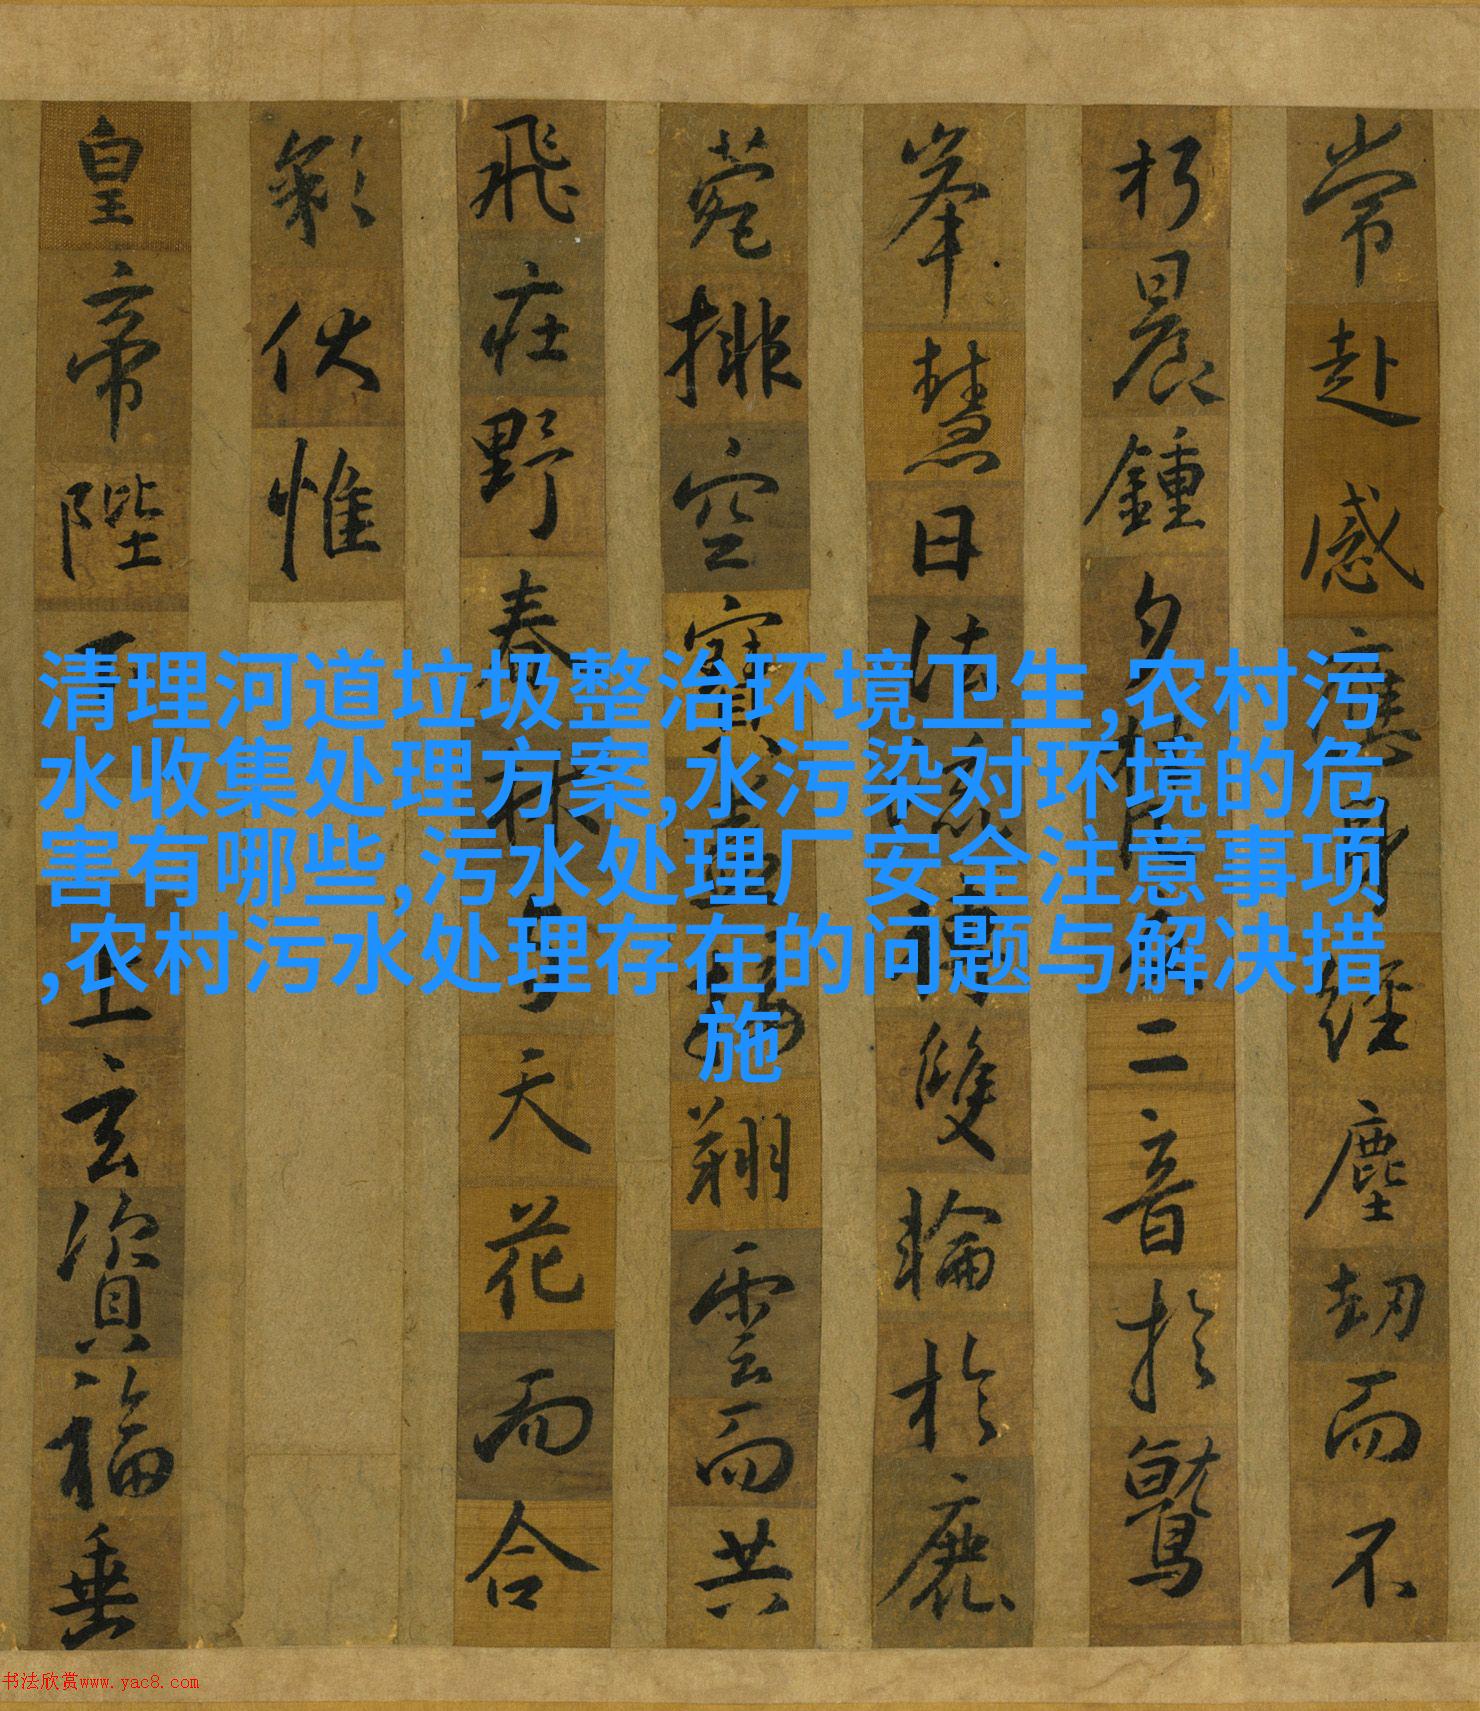 常赴感應身經塵劫而不
朽晨鍾夕梵交二音於鷲
峯慧日法流轉雙輪於鹿
菀排空寶盖接翔雲而共
飛莊野春林与天花而合
彩伏惟
皇帝陛下上玄資福垂
清理河道垃圾整治环境卫生,农村污
水收集处理方案,水污染对环境的危
害有哪些,污水处理厂安全注意事项
,农村污水处理存在的问题与解决措
施
书法欣赏www.yac8.com